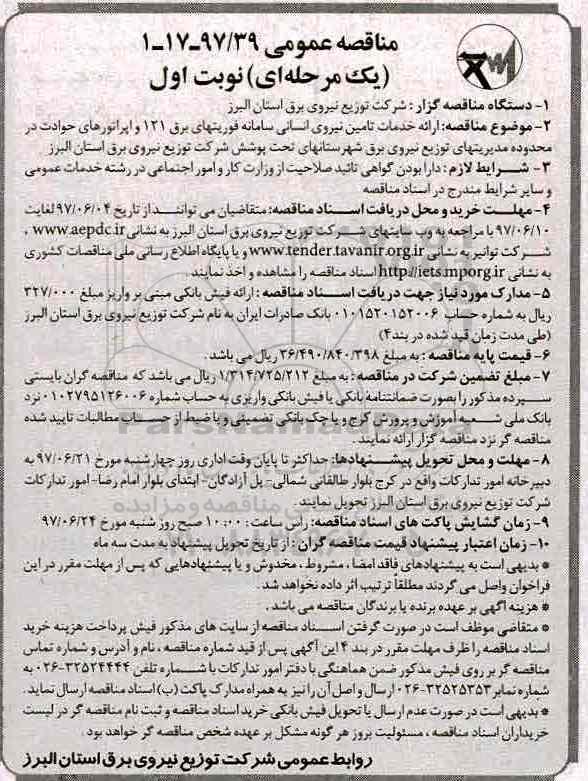 مناقصه عمومی ۹۷/۳۹-۱۷-۱
(یک مرحله‌ای) نوبت اول
۱- دستگاه مناقصه گزار: شرکت توزیع نیروی برق استان البرز
۲- موضوع مناقصه: ارائه خدمات تامین نیروی انسانی سامانه فوریتهای برق ۱۲۱ و اپراتورهای حوادث در
محدوده مدیریتهای توزیع نیروی برق شهرستانهای تحت پوشش شرکت توزیع نیروی برق استان البرز
۳- شرایط لازم: دارا بودن گواهی تائید صلاحیت از وزارت کار و امور اجتماعی در رشته خدمات عمومی
و سایر شرایط مندرج در اسناد مناقصه
۴- مهلت خرید و محل دریافت اسناد مناقصه: متقاضیان می توانند از تاریخ ۹۷/۰۶/۰۴ لغایت
۹۷/۰۶/۱۰ با مراجعه به وب سایتهای شرکت توزیع نیروی برق استان البرز به نشانی www.aepdc.ir ،
شرکت توانیر به نشانی www.tender.tavanir.org.ir و یا پایگاه اطلاع رسانی ملی مناقصات کشوری
به نشانی http://iets.mporg.ir اسناد مناقصه را مشاهده و اخذ نمایند.
۵- مدارک مورد نیاز جهت دریافت اسناد مناقصه: ارائه فیش بانکی مبنی بر واریز مبلغ ۳۲۷/۰۰۰
ریال به شماره حساب ۰۱۰۱۵۲۰۱۵۲۰۰۶ بانک صادرات ایران به نام شرکت توزیع نیروی برق استان البرز
(طی مدت زمان قید شده در بند ۴)
۶- قیمت پایه مناقصه: به مبلغ ۳۶/۴۹۰/۸۴۰/۳۹۸ ریال می باشد.
۷- مبلغ تضمین شرکت در مناقصه: به مبلغ ۱/۳۱۴/۷۲۵/۲۱۲ ریال می باشد که مناقصه گران بایستی
سپرده مذکور را بصورت ضمانتنامه بانکی یا فیش بانکی واریزی به حساب شماره ۰۱۰۲۷۹۵۱۲۶۰۰۶ نزد
بانک ملی شعبه آموزش و پرورش کرج و یا چک بانکی تضمینی و یا ضبط از حساب مطالبات تایید شده
مناقصه گر نزد مناقصه گزار ارائه نمایند.
۸- مهلت و محل تحویل پیشنهادها: حداکثر تا پایان وقت اداری روز چهارشنبه مورخ ۹۷/۰۶/۲۱ به
دبیرخانه امور تدارکات واقع در کرج بلوار طالقانی شمالی- پل آزادگان- ابتدای بلوار امام رضا- امور تدارکات
شرکت توزیع نیروی برق استان البرز تحویل نمایند.
۹- زمان گشایش پاکت های اسناد مناقصه: راس ساعت: ۱۰:۰۰ صبح روز شنبه مورخ ۹۷/۰۶/۲۴
۱۰- زمان اعتبار پیشنهاد قیمت مناقصه گران: از تاریخ تحویل پیشنهاد به مدت سه ماه
* بدیهی است به پیشنهادهای فاقد امضا، مشروط، مخدوش و یا پیشنهادهایی که پس از مهلت مقرر در این
فراخوان واصل می گردند مطلقاً ترتیب اثر داده نخواهد شد.
* هزینه آگهی بر عهده برنده یا برندگان مناقصه می باشد.
* متقاضی موظف است در صورت گرفتن اسناد مناقصه از سایت های مذکور فیش پرداخت هزینه خرید
اسناد مناقصه را ظرف مهلت مقرر در بند ۴ این آگهی پس از قید شماره مناقصه، نام و آدرس و شماره تماس
مناقصه گر بر روی فیش مذکور ضمن هماهنگی با دفتر امور تدارکات با شماره تلفن ۳۲۵۲۴۴۴۴-۰۲۶ به
شماره نمابر ۳۲۵۲۵۳۵۳-۰۲۶ ارسال و اصل آن را نیز به همراه مدارک پاکت (ب) اسناد مناقصه ارسال نماید.
* بدیهی است در صورت عدم ارسال یا تحویل فیش بانکی خرید اسناد مناقصه و ثبت نام مناقصه گر در لیست
خریداران اسناد مناقصه، مسئولیت بروز هر گونه مشکل بر عهده شخص مناقصه گر خواهد بود.
روابط عمومی شرکت توزیع نیروی برق استان البرز